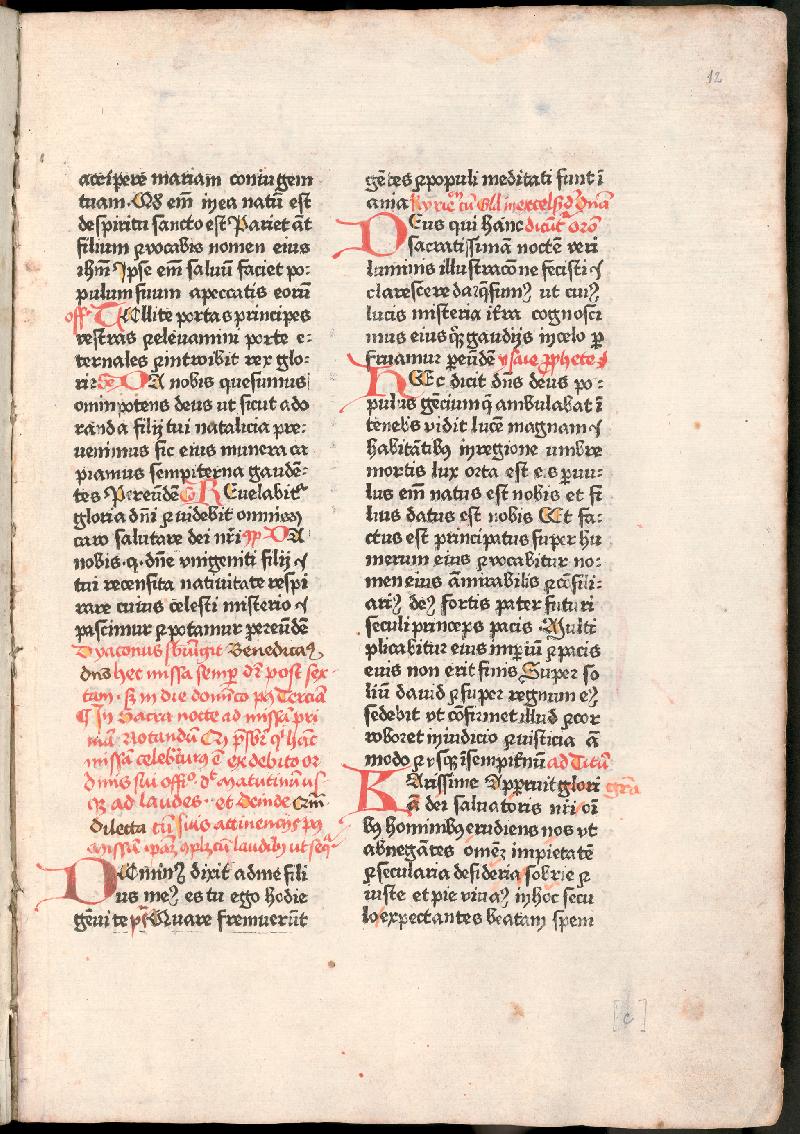 12
accipere mariam coniugem
tuam. Qd em̄ in ea natū est
de spiritu sancto est Pariet āt
filium ⁊ vocabis nomen eius
ihm̄ Ipse em̄ saluū faciet po:
pulum suum a peccatis eorū
off Tollite portas principes
vestras ⁊ eleuamini porte e:
ternales ⁊ introibit rex glo:
rie Da nobis quesumus
omnipotens deus ut sicut ado
randa filij tui natalicia pre:
uenimus sic eius munera ca
piamus sempiterna gauden:
tes Per eundē Reuelabit̄
gloria dn̄i ⁊ videbit omnis
caro salutare dei nr̄i Da
nobis .q. dn̄e vnigeniti filij
tui recensita natiuitate respi
rare cuius celesti misterio
pascimur ⁊ potamur per eundē
Dyaconus sbiūgit Benedicam9
dn̄o hec missa semp̄ dr̄ post sex
tam. Sz in die domīco pꝰ Terciā
In Sacra nocte ad missā pri
mā Notandū
missā ex debito or
dinis sui offꝰ. dr̄ Matutinū us
qz ad laudes. et Deinde
Dilecta cū suis attinencijs pꝰ
missā laudibꝰ ut seqr̄
Dominꝰ dixit ad me fili
us meꝰ es tu ego hodie
genui te ps̄ Quare fremuerūt
gētes ⁊ populi meditati sunt ī
ania Kyrie cū Gll in excelsis
Deus qui hanc dicūt̄ oro
sacratissimā noctē veri
luminis illustracōne fecisti
clarescere da qs̄umꝰ ut cuiꝰ
lucis misteria ī tra cognoui
mus eius qz gaudijs in celo p̄
fruamur per eūdē ysaie pphete
Hec dicit dn̄s deus po:
pulus gēcium q̄ ambulabat ī
tenebris vidit lucē magnam
habitātibꝰ in regione umbre
mortis lux orta est eis paruu:
lus em̄ natus est nobis et fi
lius datus est nobis Et fa:
ctus est principatus super hu
merum eius ⁊ vocabitur no:
men eius āmirabilis ⁊ cōsili:
ariꝰ deꝰ fortis pater futuri
seculi princeps pacis Multi
plicabitur eius imperiū ⁊ pacis
eius non erit finis Super so
liū dauid ⁊ super regnum eiꝰ
sedebit vt cōfirmet illud ⁊ cor
roboret in iudicio ⁊ iusticia ā
modo ⁊ vsqz ī sempitnū ad Titū
Karissime Apparuit glori grā
ā dei saluatoris nr̄i oī
bꝰ hominibꝰ erudiens nos vt
abnegātes omeꝫ impietatē
⁊ secularia desideria sobrie ⁊
iuste et pie viuamꝰ in hoc secu
lo expectantes beatam spem
[c]